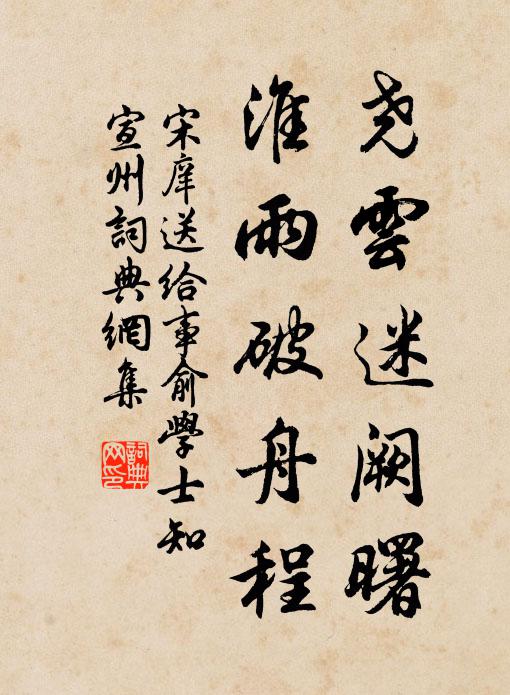 尭雲迷闕曙
淮雨破舟程
宋庠送給事俞學士知
宣州詞典網集
詞典网印